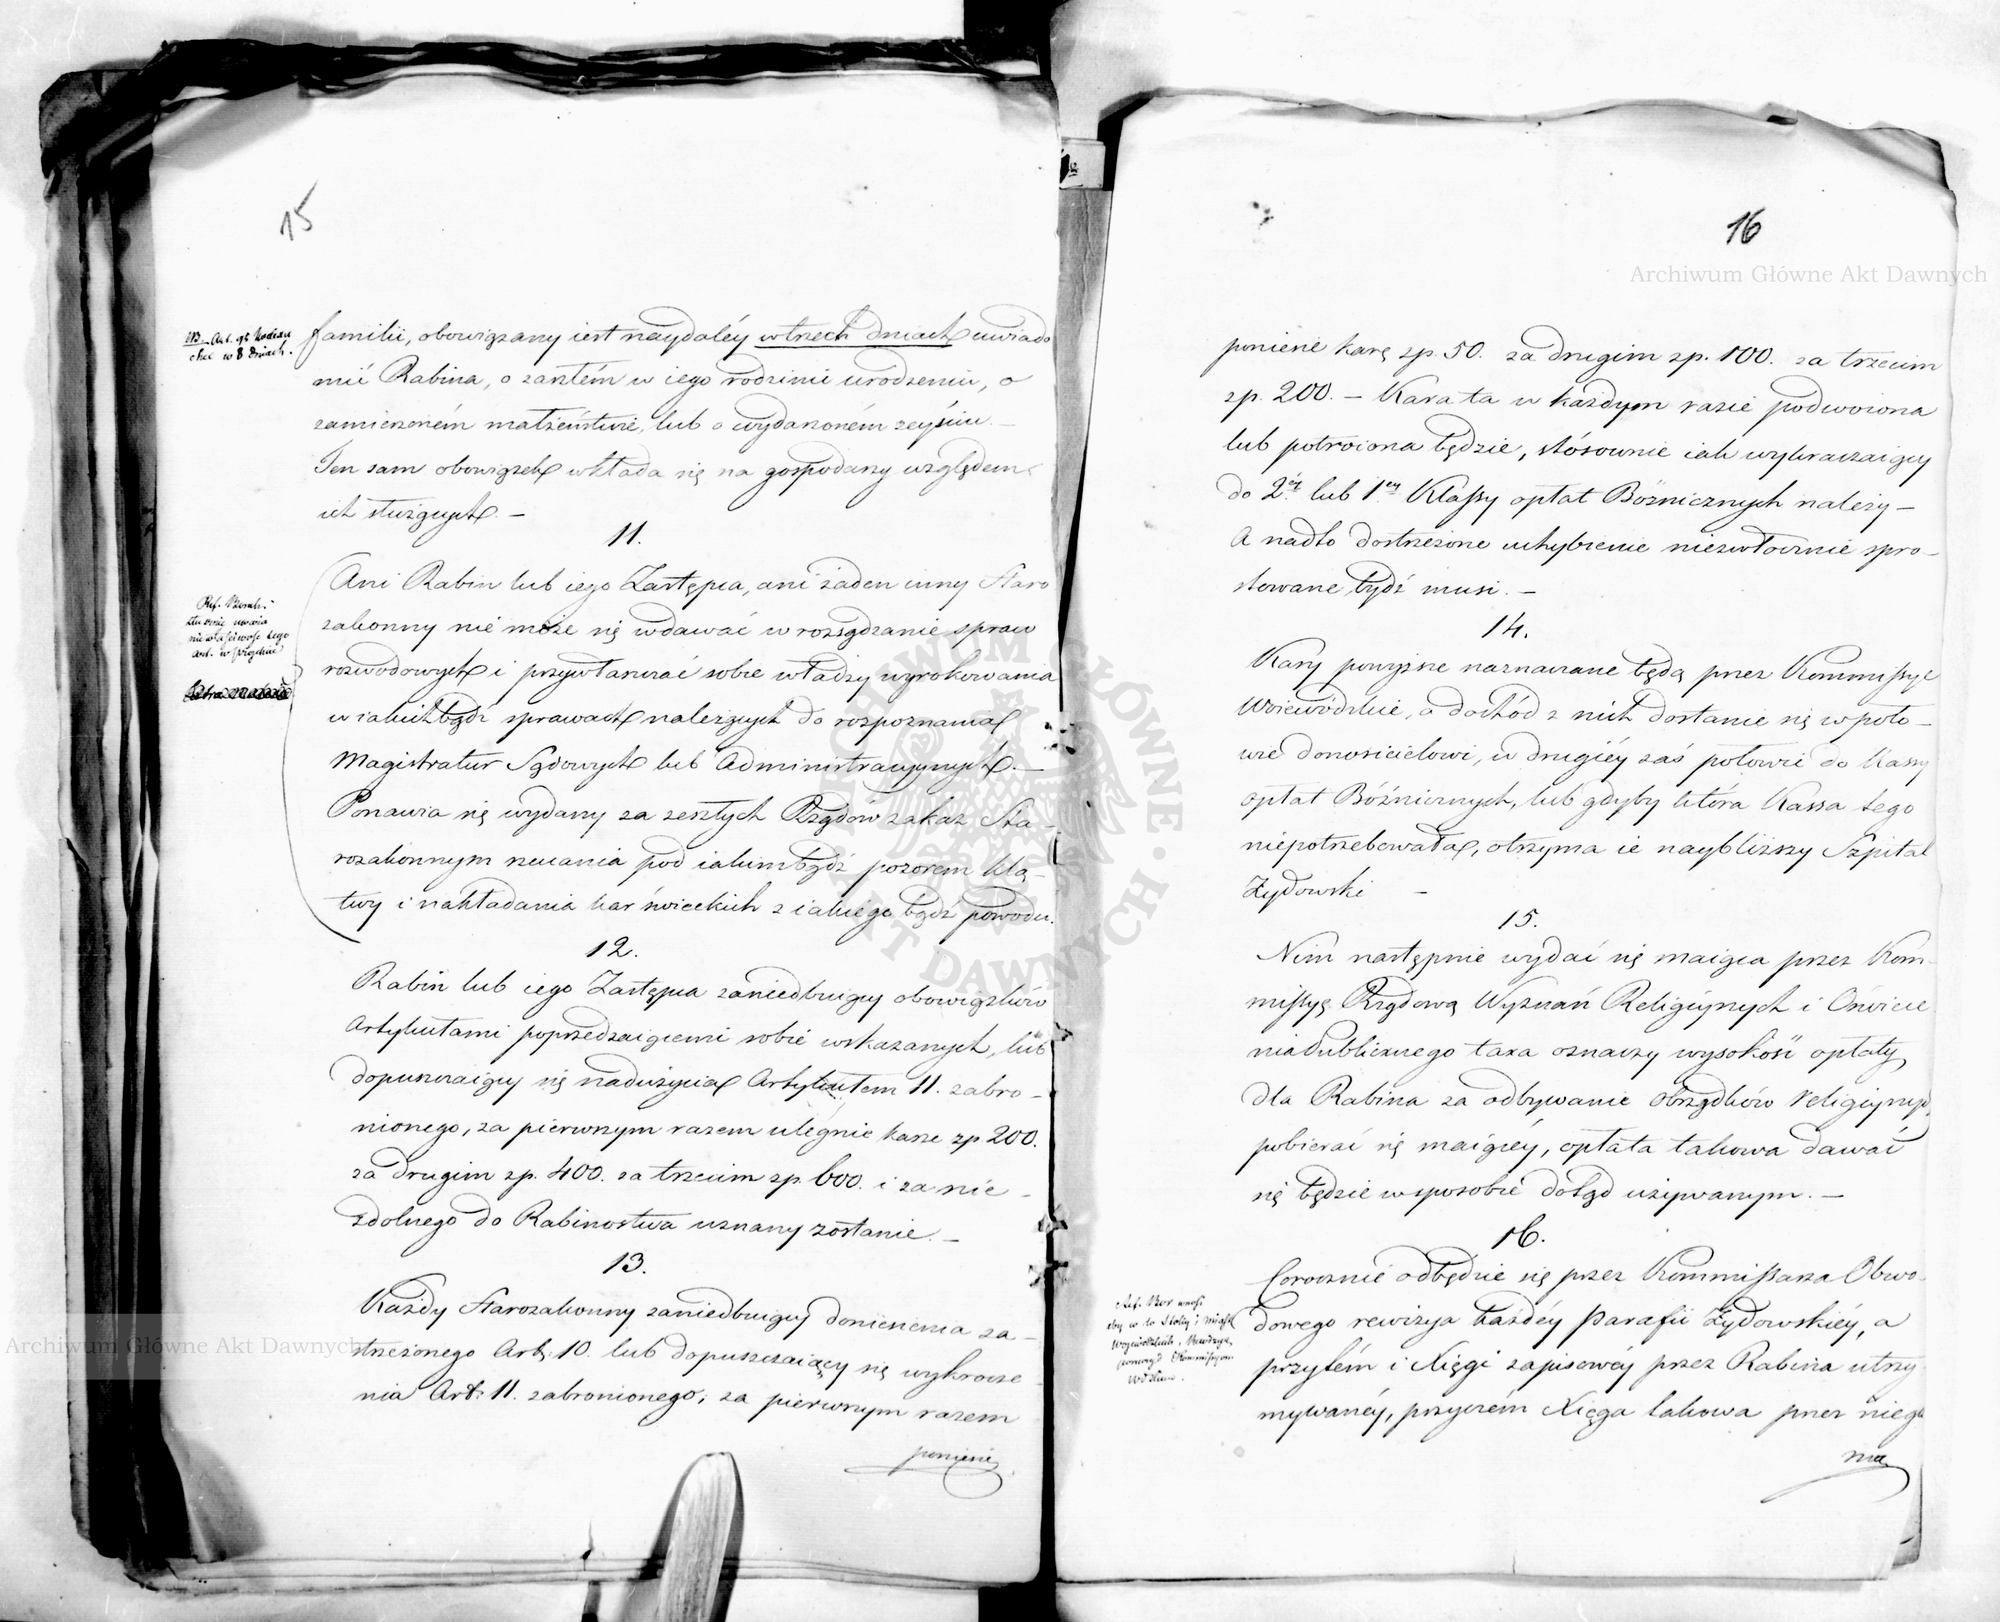 15
NB. Art. 95 Kodexu
chce w 8 dniach.
familii, obowiązany iest naydaléy w trzech dniach uwiado
mić Rabina, o zaszłém w iego rodzinie urodzeniu, o
zamierzoném małżeństwie, lub o wydarzoném zeyściu. —
Ten sam obowiązek wkłada się na gospodarzy względem
ich służących. —
11.
Ani Rabin lub iego Zastępca, ani żaden inny Staro
zakonny nie może się wdawać w rozsądzanie spraw
rozwodowych i przywłaszczać sobie władzy wyrokowania
w iakichbądź sprawach należących do rozpoznania
Magistratur Sądowych lub Administracyynych. —
Ponawia się wydany za zeszłych Rządów zakaz Sta-
rozakonnym rzucania pod iakimbądź pozorem klą-
twy i nakładania kar świeckich z iakiego bądź powodu.
Ref.
niewłaściwość tego
Art. w Proiekcie
12.
Rabin lub iego Zastępca zaniedbuiący obowiązków
Artykułami poprzedzaiącemi sobie wskazanych, lub
dopuszczaiący się nadużycia Artykułem 11. zabro-
nionego, za pierwszym razem ulegnie karze zp 200.
za drugim zp. 400. za trzecim zp. 600. i za nie-
zdolnego do Rabinostwa uznany zostanie. —
13.
Każdy Starozakonny zaniedbuiący doniesienia za-
strzeżonego Art: 10. lub dopuszczaiący się wykrocze
nia Art: 11. zabronionego, za pierwszym razem
poniesie
16
poniesie karę zp. 50. za drugim zp. 100. za trzecim
zp. 200. — Kara ta w każdym razie podwoiona
lub potroiona będzie, stósownie iak wykraczaiący
do 2éy lub 1éy Klassy opłat Bóźnicznych należy —
A nadto dostrzeżone uchybienie niezwłocznie spro-
stowane bydź musi. —
14.
Kary powyższe naznaczane będą przez Kommissye
Woiewódzkie, a dochód z nich dostanie się w poło-
wie donosicielowi, w drugiéy zaś połowie do Kassy
opłat Bóźnicznych, lub gdyby która Kassa tego
niepotrzebowała, otrzyma ie naybliższy Szpital
Żydowski —
15.
Nim następnie wydać się maiąca przez Kom-
missyę Rządową Wyznań Religiynych i Oświece
nia Publicznego taxa oznaczy wysokość opłaty,
dla Rabina za odbywanie obrządków religiynych
pobierać się maiącéy, opłata takowa dawać
się będzie w sposobie dotąd używanym. —
16.
Corocznie odbędzie się przez Kommissarza Obwo-
dowego rewizya każdéy Parafii Żydowskiéy, a
przytém i Xięgi zapisowéy przez Rabina utrzy
mywanéy, przyczém Xięga takowa przez niego
na
aby w to Stolicy i miast
Woiewódzkich,
Archiwum Główne Akt Dawnych
Archiwum Główne Akt Dawnych
ARCHIWUM GŁÓWNE AKT DAWNYCH